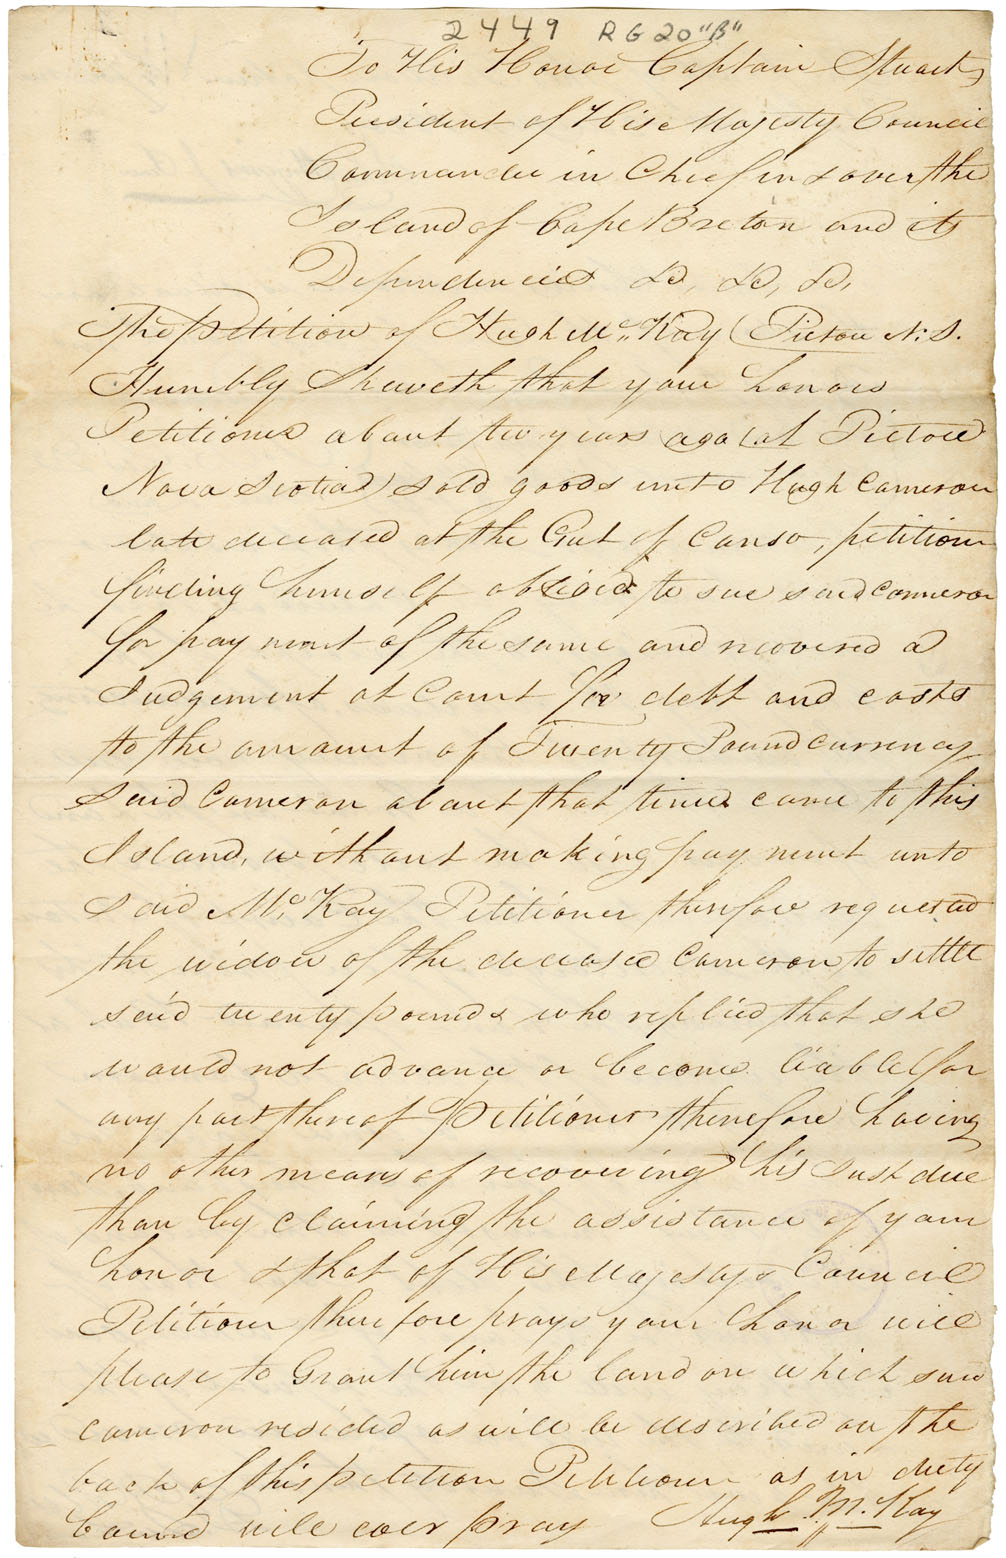 2449 RG 20 "B"
To His Honor Captain Stuart,
President of His Majesty Council
Commander in Chief in & over the
Island of Cape Breton and its
Dependencies &c, &c, &c,
The Petition of Hugh Mc,, Kay (Pictou N. S.
Humbly Sheweth that your honors
Petitioner about two years ago (at Pictou
Nova Scotia) sold goods unto Hugh Cameron
late deceased at the Gut of Canso, petitioner
finding himself oblided to sue said cameron
for payment of the same and recovered a
Judgement at Court for debt and costs
to the amount of Twenty Pound currency
said Cameron about that time came to this
Island, without making payment unto
said Mc. Kay Petitioner therefore requested
the widow of the deceased Cameron to settle
said twenty pounds who replied that she
would not advance or become liable for
any part thereof Petitioner therefore having
no other means of recovering his Just due
than by claiming the assistance of your
honor & that of His Majestys Council
Petitioner therefore prays your honor will
please to Grant him the land on which said
cameron resided as will be described on the
back of this petition Petitioner as in duty
bound will ever pray Hugh Mc Kay